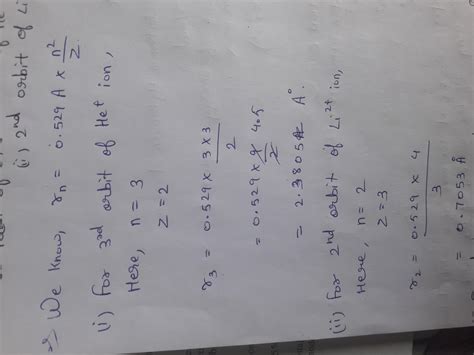 (i) 2nd orbit of Li
⇒ We know, rn = 0.529 A × n²/Z
(i) For 3rd orbit of He+ ion,
Here, n = 3
Z = 2
r3 = 0.529 × 3 × 3 / 2
= 0.529 × 9 4.5 / 2
= 2.3805 A°
(ii) For 2nd orbit of Li2+ ion,
Here, n = 2
Z = 3
r2 = 0.529 × 4 / 3
= 0.7053 Å